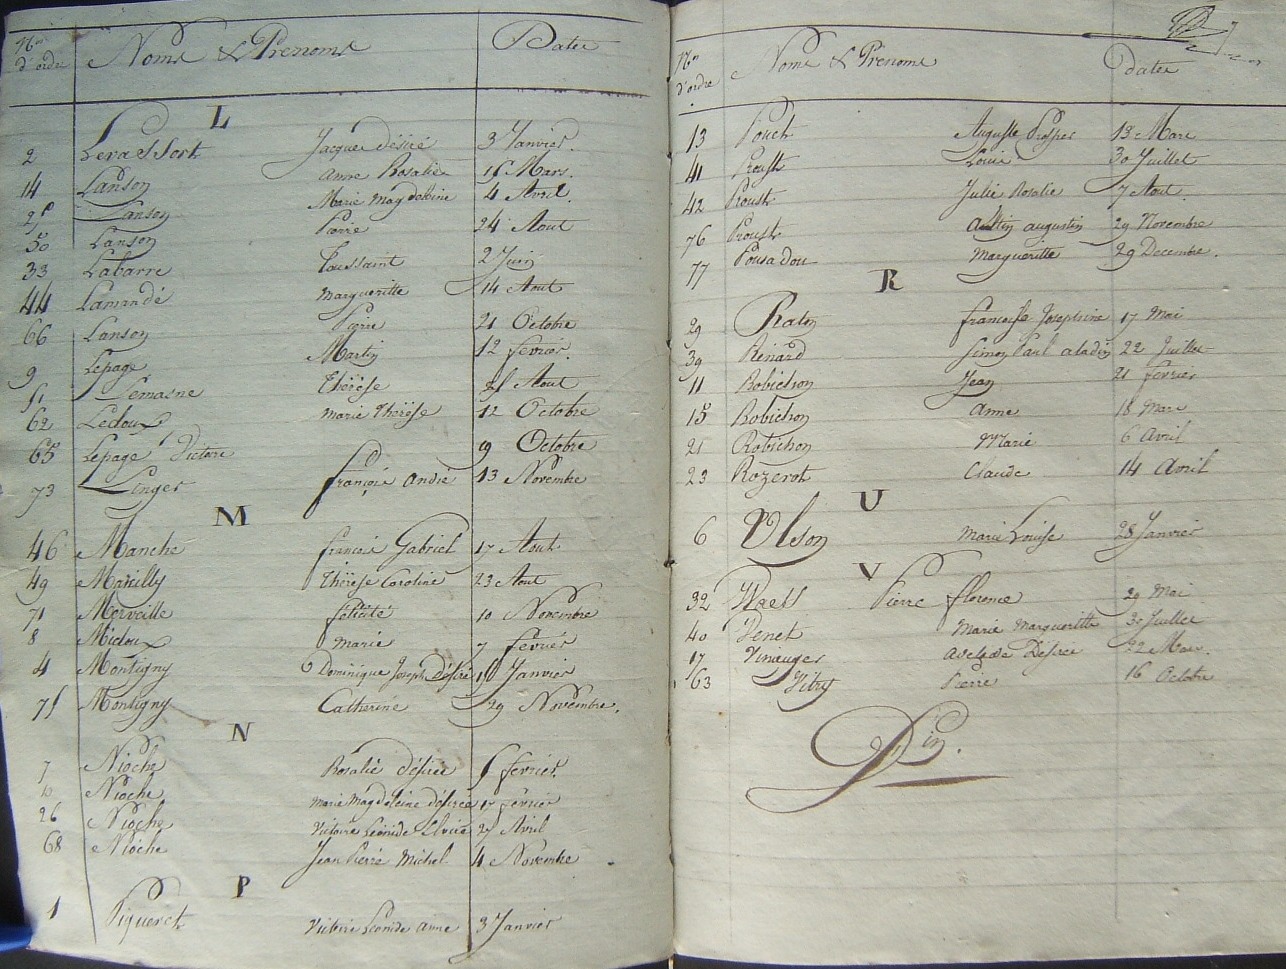 Nos d'ordre Noms & Prenoms Dates
L
2 Levassort Jacques désiré 3 Janvier.
14 Lanson Anne Rosalie 15 Mars.
25 Lanson Marie Magdeleine 4 Avril.
50 Lanson Pierre 24 Aout
33 Labarre Toussaint 2 Juin
44 Lamandé margueritte 14 Aout
66 Lanson Pierre 21 Octobre
9 Lepage Martin 12 fevrier.
51 Lemasne Thérèse 25 Aout
62 Ledoux marie Thérèse 12 Octobre
65 Lepage Victoire 19 Octobre
73 Linger françois André 13 Novembre
M
46 Manche françois Gabriel 17 Aout
49 Marilly Thérèse Caroline 23 Aout
71 Merveille félicité 10 Novembre
8 Midoux marie 7 fevrier
4 Montigny Dominique Joseph Désiré 15 Janvier
75 Montigny Catherine 29 Novembre.
N
7 Nioche Rosalie désirée 5 fevrier.
10 Nioche marie Magdeleine désirée 17 fevrier
26 Nioche Victoire Léonide Elvire 27 Avril
68 Nioche Jean Pierre Michel 4 Novembre
P
1 Piqueret Victoire Léonide anne 3 Janvier
Nos d'ordre Noms & Prenoms dates
13 Pouct Auguste Prosper 13 Mars
41 Proust Louis 30 Juillet
42 Proust Julie Rosalie 7 Aout
76 Proust augustin 29 Novembre
77 Pousadou Margueritte 29 Decembre.
R
29 Raton françoise Josephine 17 Mai
39 Renard Simon Paul aladin 22 Juillet
11 Robichon Jean 21 fevrier
15 Robichon Anne 18 Mars
21 Robichon Marie 6 Avril
23 Rozerot Claude 14 Avril
U
6 Ulson Marie Louise 28 Janvier
V
32 Pierre florence 29 Mai
40 Venet Marie Margueritte 30 Juillet
17 Vinauger Adelaide Désirée 22 Mars.
63 Vitry Pierre 16 Octobre
Fin.